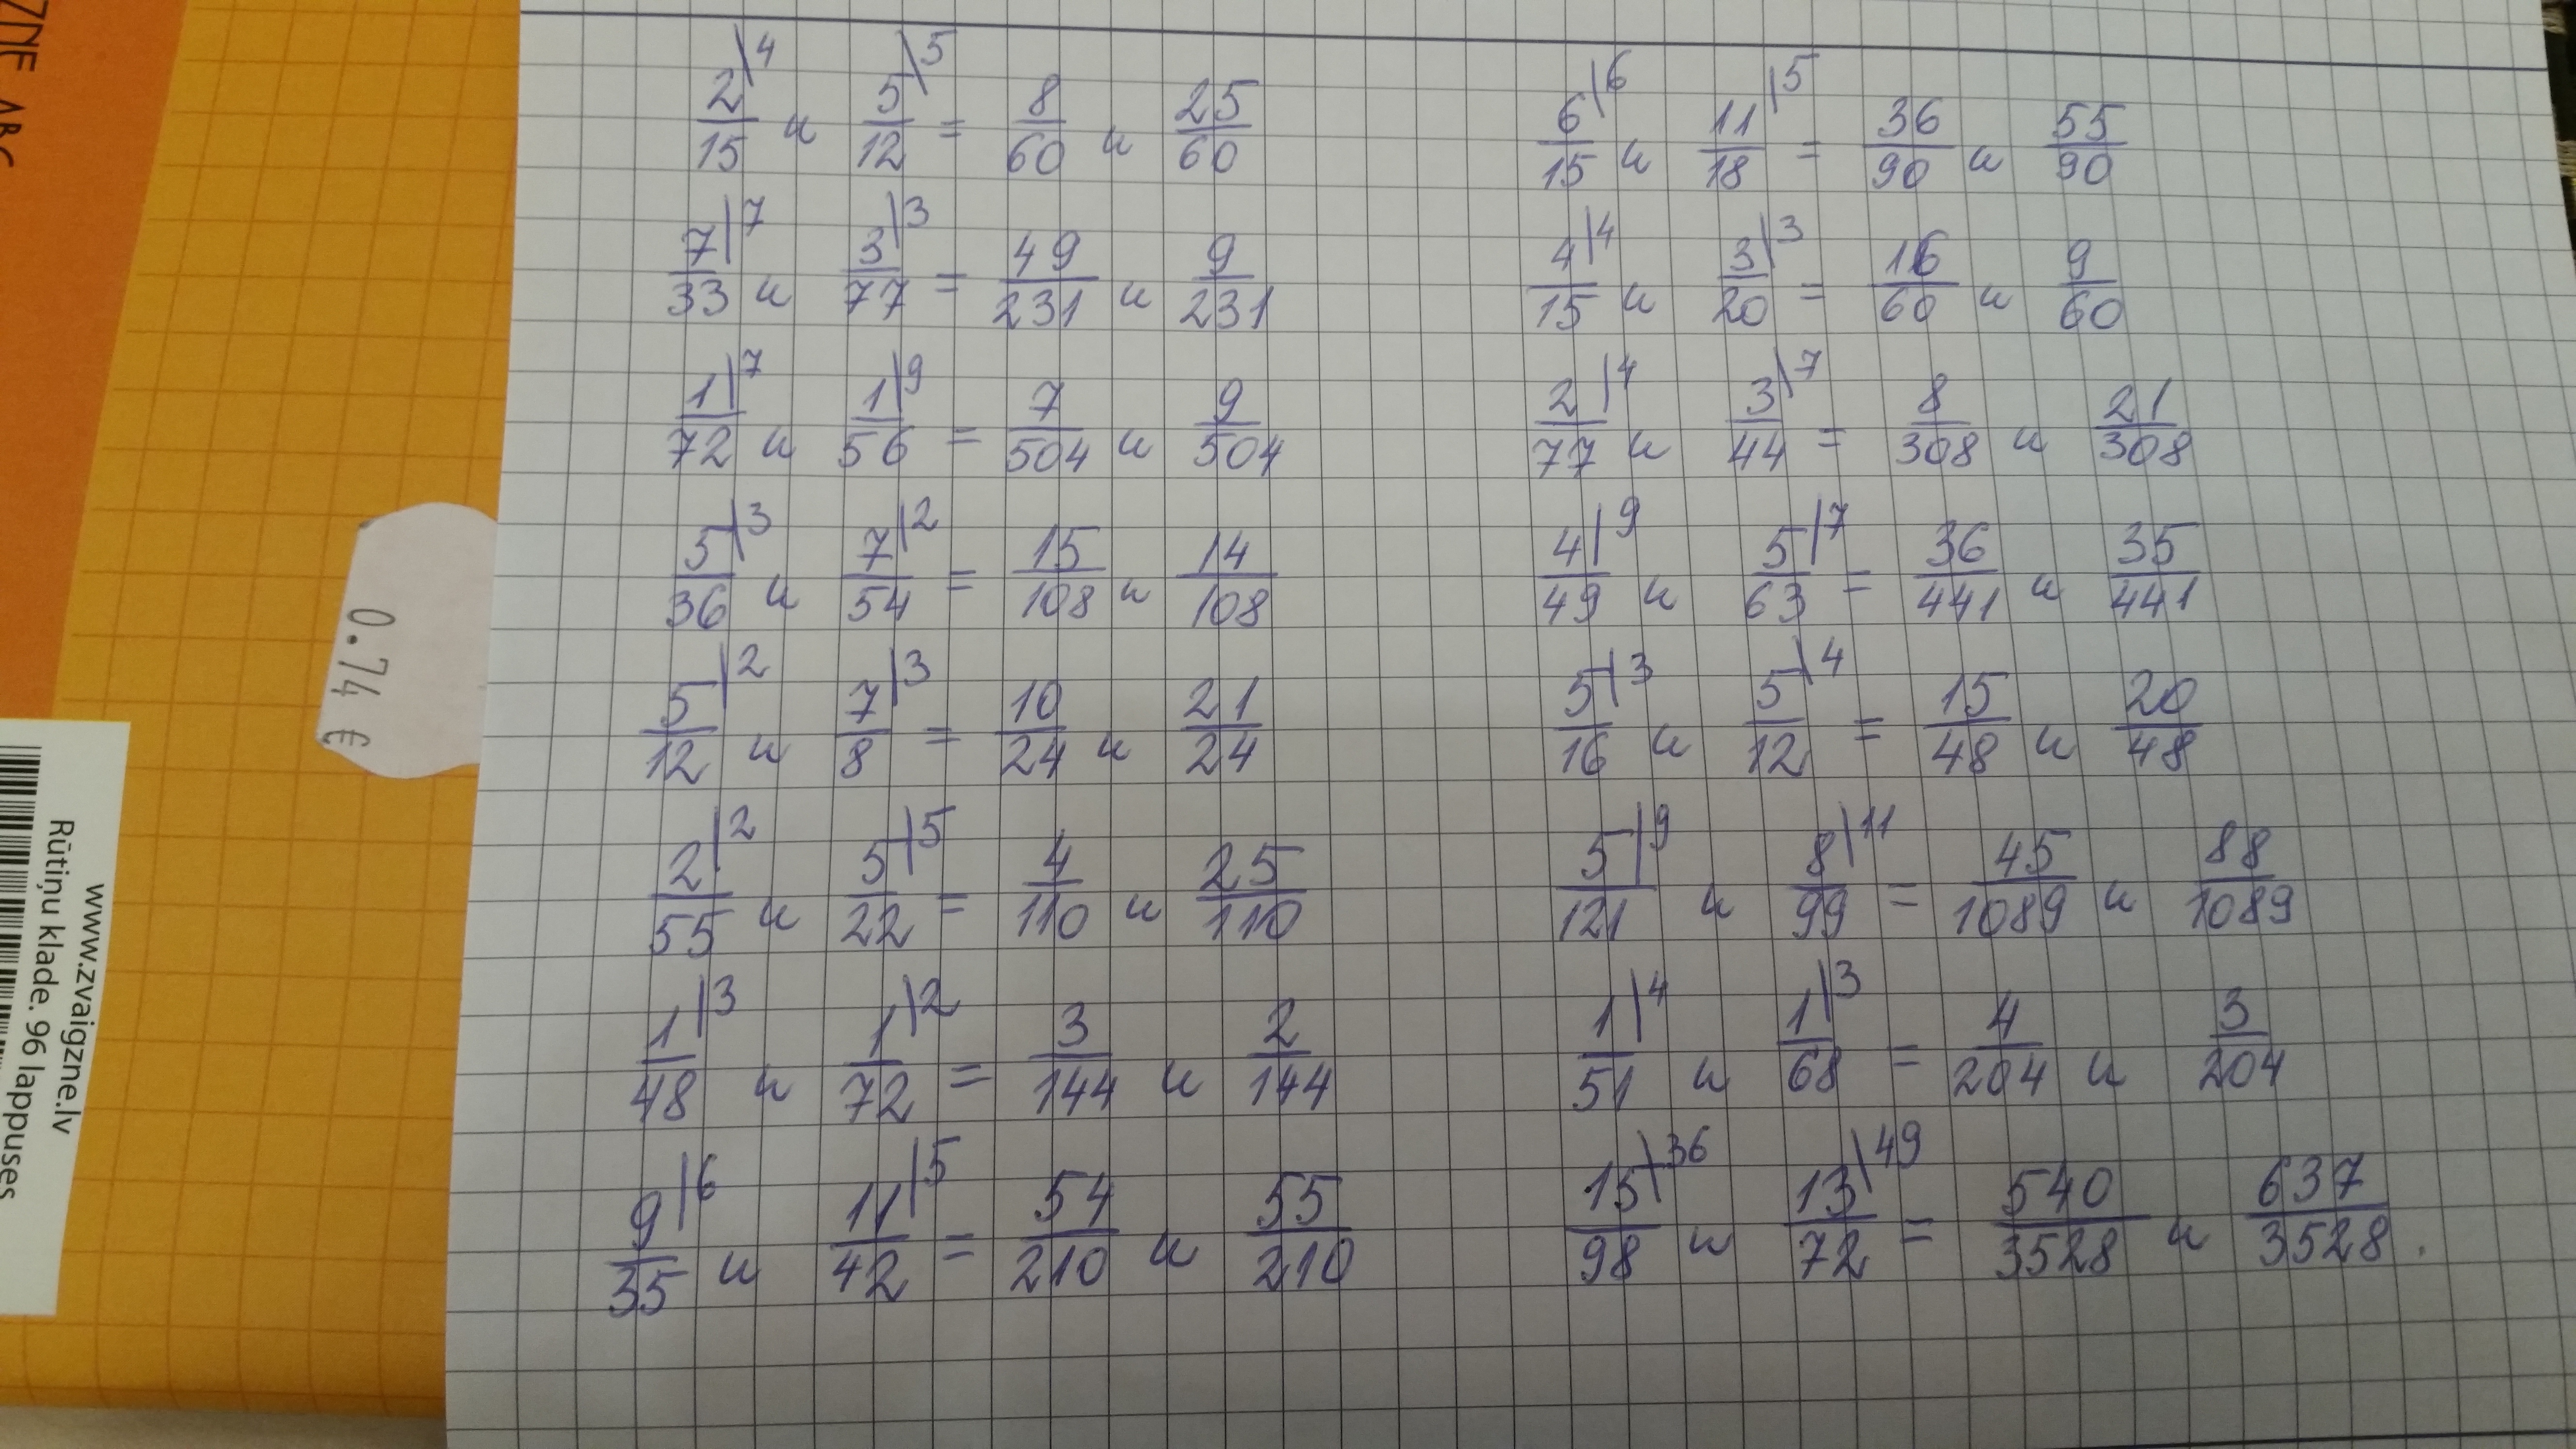 ZNE ABC
2/15 \4 и 5/12 \5 = 8/60 и 25/60
7/33 |7 и 3/77 |3 = 49/231 и 9/231
1/72 |7 и 1/56 |9 = 7/504 и 9/504
5/36 |3 и 7/54 |2 = 15/108 и 14/108
5/12 |2 и 7/8 |3 = 10/24 и 21/24
2/55 |2 и 5/22 |5 = 4/110 и 25/110
1/48 |3 и 1/72 |2 = 3/144 и 2/144
9/35 |6 и 11/42 |5 = 54/210 и 55/210
6/15 |6 и 11/18 |5 = 36/90 и 55/90
4/15 |4 и 3/20 |3 = 16/60 и 9/60
2/77 |4 и 3/44 \7 = 8/308 и 21/308
4/49 |9 и 5/63 |7 = 36/441 и 35/441
5/16 |3 и 5/12 \4 = 15/48 и 20/48
5/121 |9 и 8/99 |11 = 45/1089 и 88/1089
1/51 |4 и 1/68 |3 = 4/204 и 3/204
15/98 \36 и 13/72 \49 = 540/3528 и 637/3528.
0.74 €
www.zvaigzne.lv
Rūtiņu klade. 96 lappuses